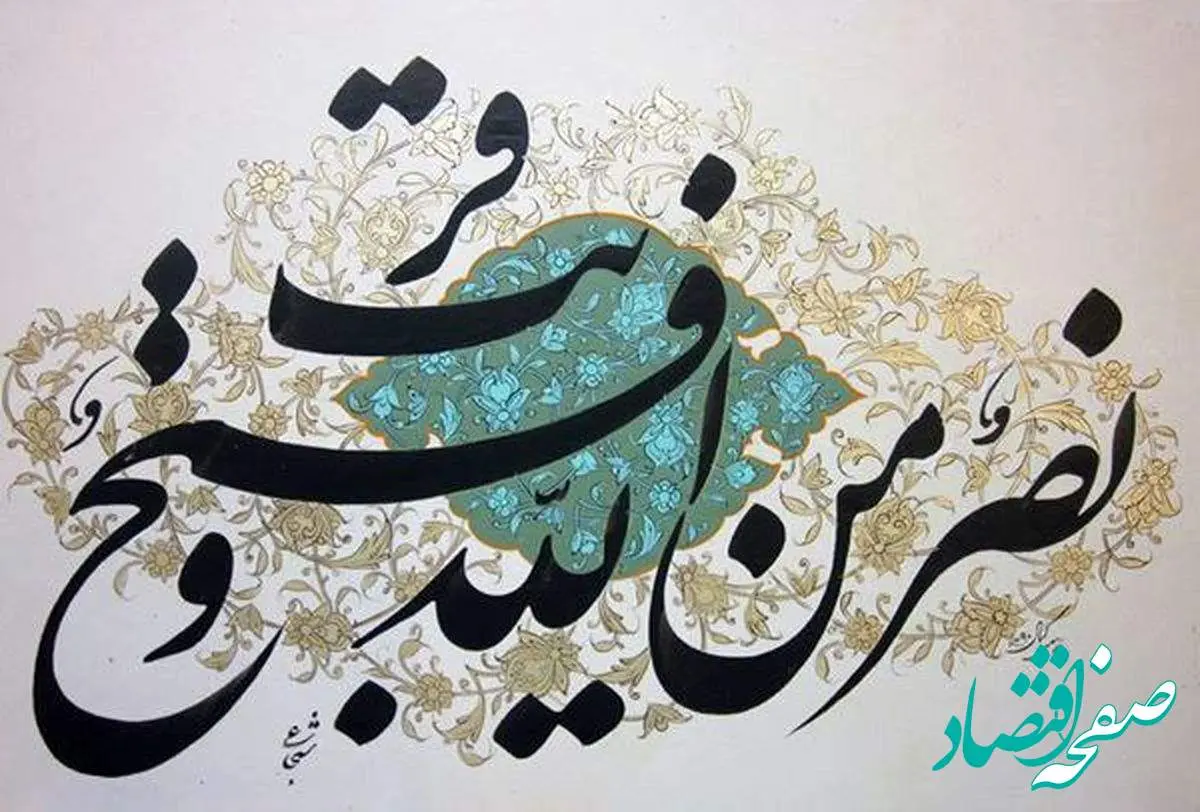 نصرٌ من الله و فتحٌ قریب
صفحه اقتصاد